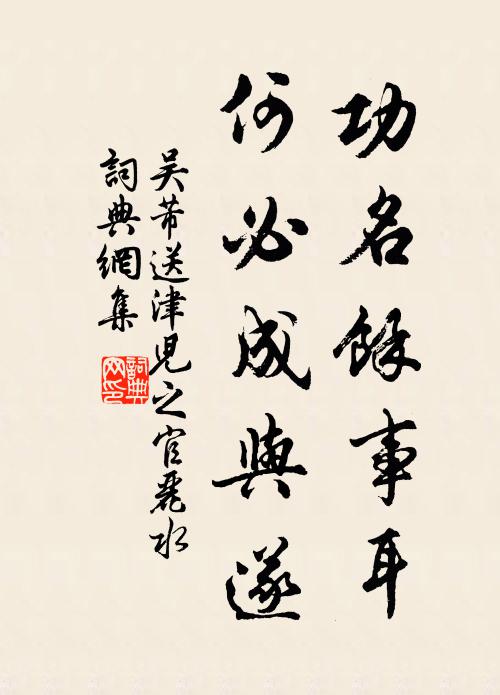 功名餘事耳
何必成與遂
吴芾送津兒之官麗水
詞典網集
詞典網印